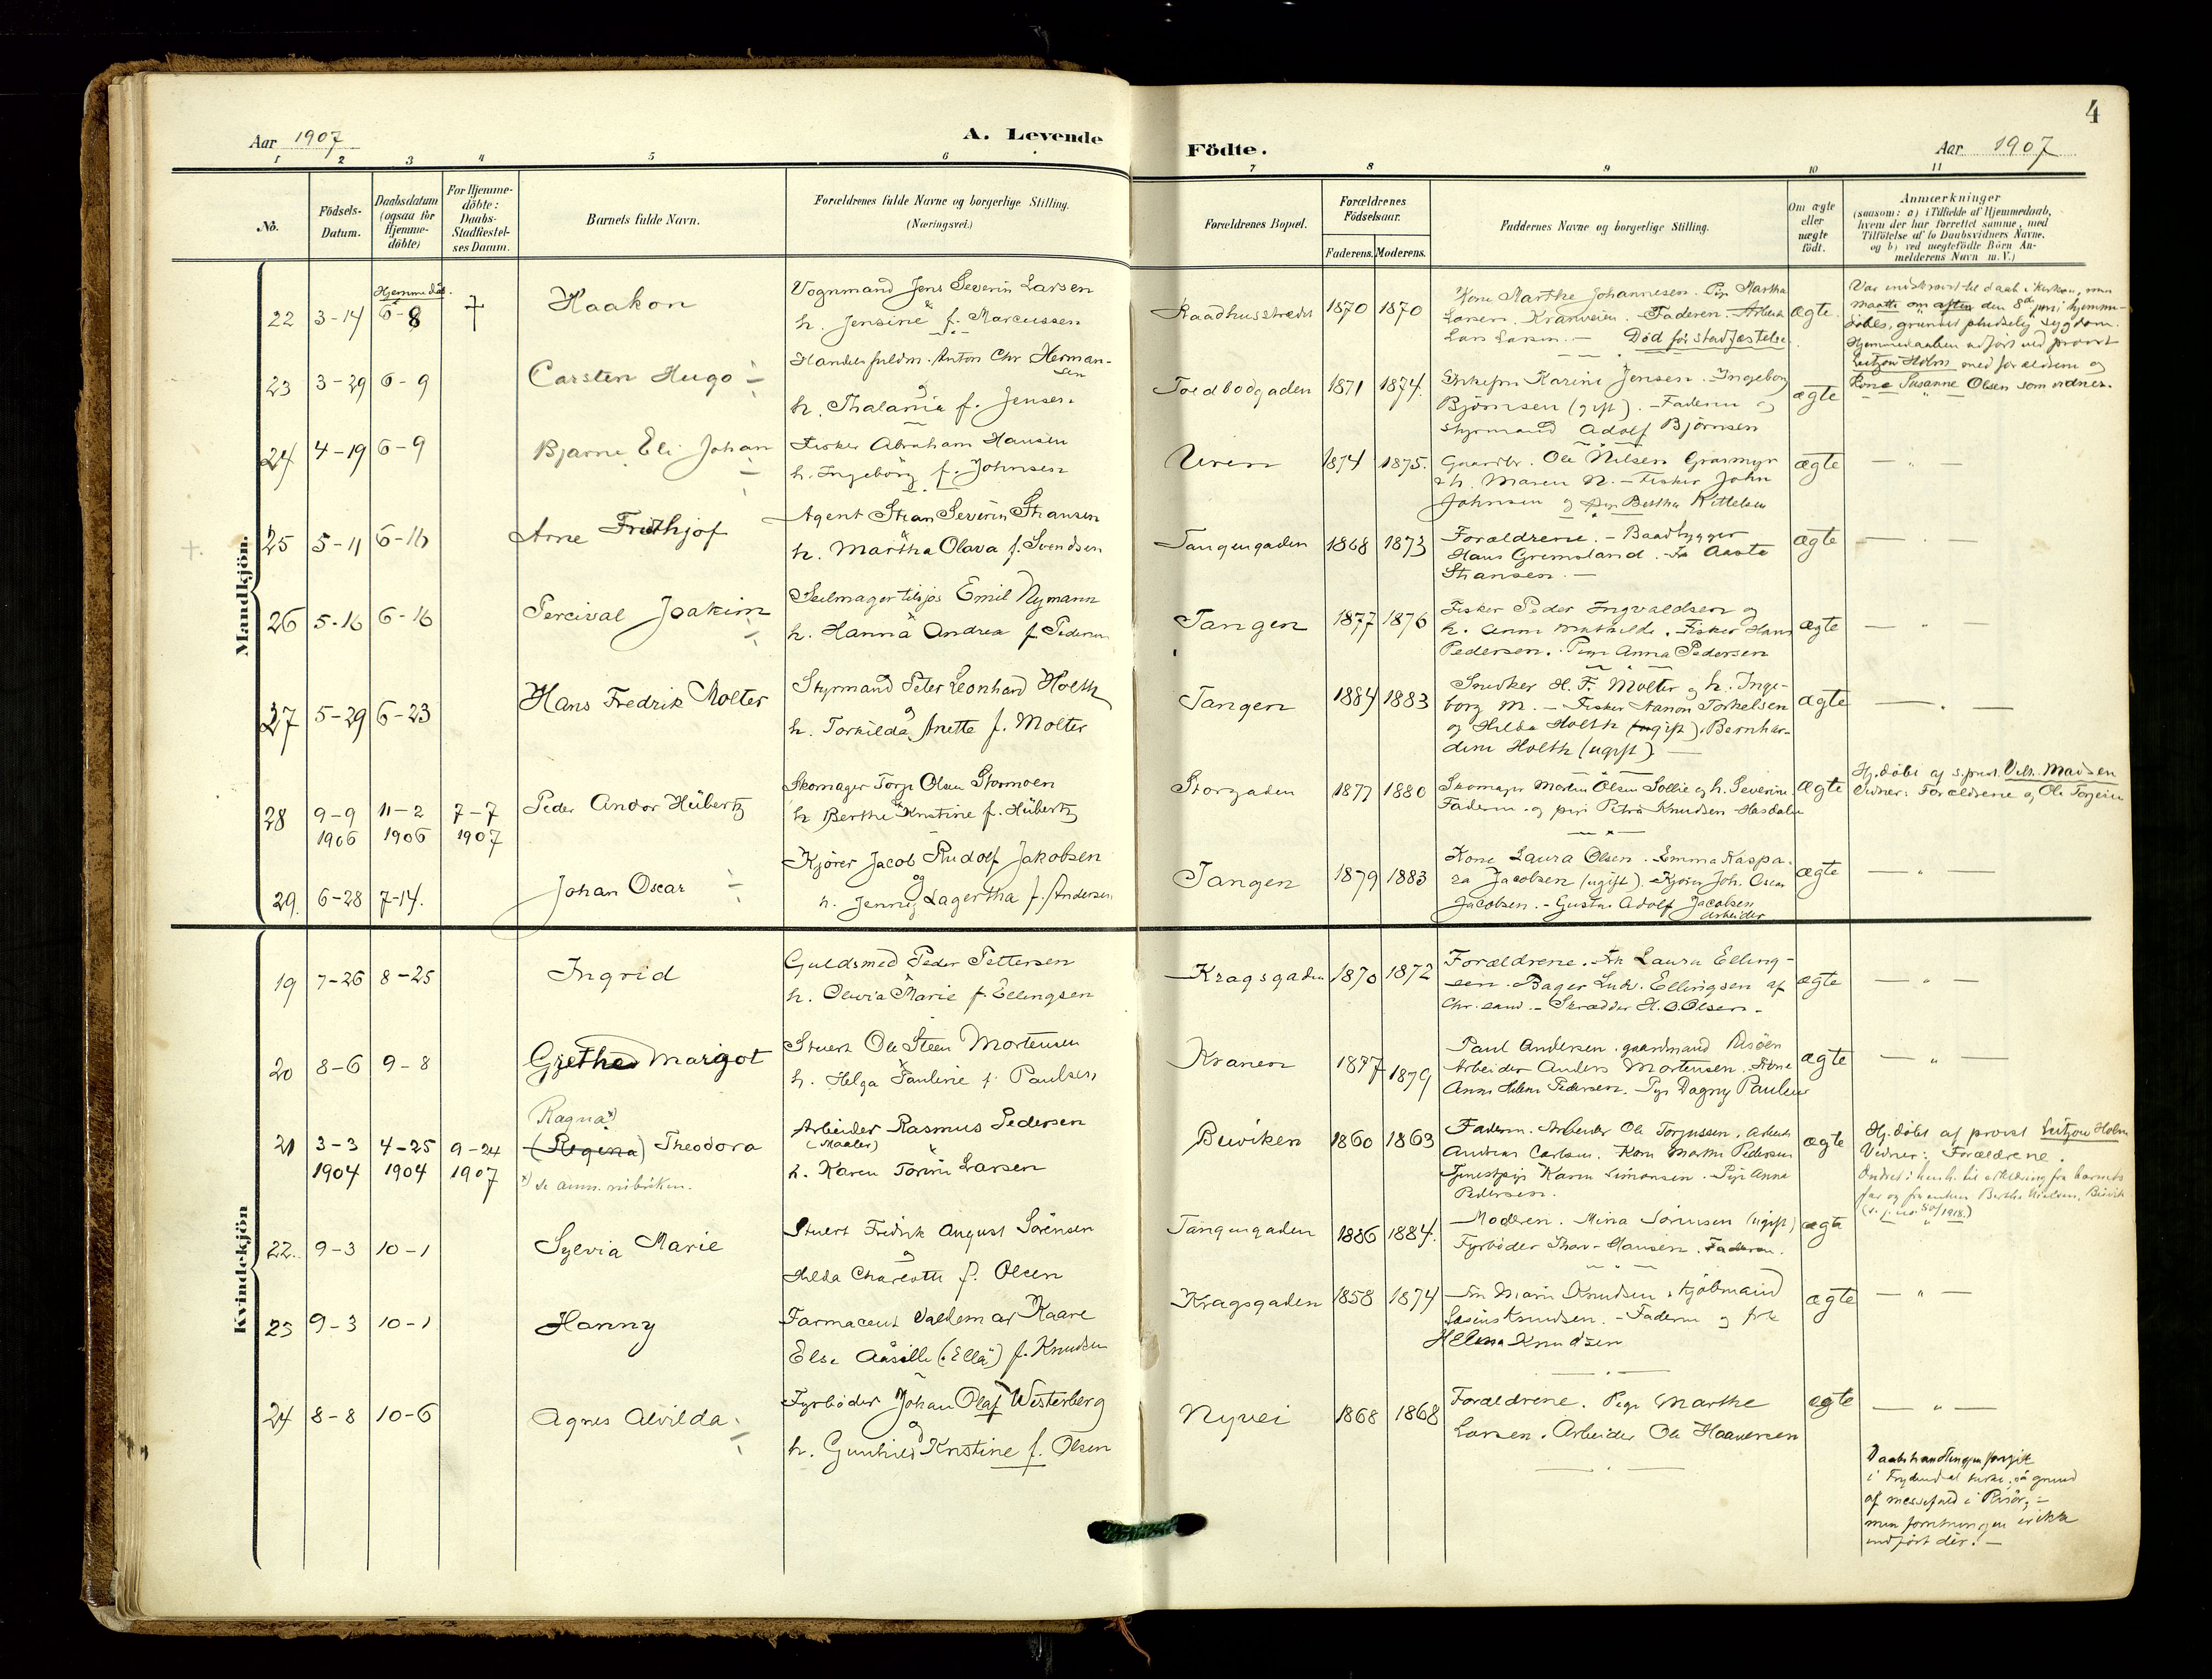 4
Aar 1907
A. Levende
Födte.
Aar 1907
1 2 3 4 5 6 7 8 9 10 11
No.
Födsels-
Datum.
Daabsdatum
(ogsaa for
Hjemme-
döbte)
For Hjemme-
döbte:
Daabs-
Stadfæstel-
ses Datum.
Barnets fulde Navn.
Forældrenes fulde Navne og borgerlige Stilling.
(Næringsvei.)
Forældrenes Bopæl.
Forældrenes
Födselsaar.
Faderens. Moderens.
Faddernes Navne og borgerlige Stilling.
Om ægte
eller
uægte
födt.
Anmærkninger
(saasom: a) i Tilfælde af Hjemmedaab,
hvem der har forrettet samme, med
Tilföielse af to Daabsvidners Navne,
og b) ved uægtefödte Börn An-
melderens Navn m. V.)
Mandkjön.
22 3-14 Hjemmedøb. 6-8 † Haakon
Vognmand Jens Severin Larsen
&
h. Jensine f. Marcussen
Raadhusstrædet 1870 1870
Kone Marthe Johannesen. Pige Martha
Larsen. Kranveien. Faderen. Arbeid.
Lars Larsen. — Død før stadfæstelse.
ægte.
maatte om aften den 8de juni hjemme-
døbes, grundet pludselig sygdom.
Hjemmedaaben udført ved provst
Lützow Holm med forældrene og
Kone Susanne Olsen som vidner.
23 3-29 6-9 Carsten Hugo
Handelsfuldm. Anton Chr Herman-
sen
og
h. Thalania f. Jensen
Toldbodgaden 1871 1874.
Enkefru Karine Jensen. Ingeborg
Björnsen (gift). - Faderen og
styrmand Adolf Björnsen
ægte
24 4-19 6-9 Bjarne Eli Johan
Fisker Abraham Hansen
h. Ingeborg f. Johnsen
Uren 1874 1875.
Gaardbr. Ole Nilsen Grasmyr
& h. Maren N. - Fisker John
Johnsen og pige Bertha Kittelsen
ægte — " —
25 5-11 6-16 Arne Fridthjof
Agent Stian Severin Stiansen
&
h. Martha Olava f. Svendsen
Tangengaden 1868 1873
Forældrene. - Baadbygger
Hans Grimsland. Frk Aasta
Stiansen. —
ægte — " —
26 5-16 6-16 Percival Joakim
Seilmager tilsjøs Emil Nymann
&
h. Hanna Andrea f. Pedersen
Tangen 1877 1876
Fisker Peder Ingvaldsen og
h. Anne Mathilde. Fisker Hans
Pedersen. Pige Anna Pedersen
ægte — " —
27 5-29 6-23 Hans Fredrik Molter
Styrmand Peter Leonhard Holth
og
h. Torkilda Anette f. Molter
Tangen 1884 1883
Snedker H. F. Molter og h. Inge-
borg M. - Fisker Aanon Torkelsen
og Hilda Holth (ugift). Bernhar-
dine Holth (ugift) —
ægte — " —
28 9-9 11-2 7-7
1906 1906 1907
Peder Andor Hübertz
Skomager Torje Olsen Stormoen
&
h. Berthe Kristine f. Hübertz
Storgaden 1877 1880
Skomager Morten Olsen Sollie og h. Severine
Faderen og pige Petra Knudsen Hasdalen
ægte
Hj.døbt af s.prest. Vilh. Madsen
Vidner: Forældrene og Ole Torjeisen
29. 6-28 7-14. Johan Oscar
Kjører Jacob Rudolf Jakobsen
og
h. Jenny Lagertha f. Andersen
Tangen 1879 1883
Kone Laura Olsen. Emma Kaspa-
ra Jacobsen (ugift). Kjører Joh. Oscar
Jacobsen. - Gustav Adolf Jacobsen
arbeider
ægte — " —
Kvindekjön
19 7-26 8-25 Ingrid
Guldsmed Peder Pettersen
&
h. Olivia Marie f. Ellingsen
Kragsgaden 1870 1872
Forældrene. Frk Laura Elling-
sen. Bager Ludv. Ellingsen af
Chr.sand. - Skrædder H. O. Olsen. -
ægte — " —
20 8-6 9-8 Grethe Margot
Stuert Ole Steen Mortensen
&
h. Helga Pauline f. Paulsen
Kranen 1877 1879
Paul Andersen. gaardmand Risøen
Arbeider Anders Mortensen. Kone
Anne Helene Pedersen. Pige Dagny Paulsen
ægte — " —
21 3-3 4-25 9-24
1904 1904 1907
Ragna*)
(Regina) Theodora
*) se anm. rubriken.
Arbeider Rasmus Pedersen
(Maaler) &
h. Karen Torine Larsen
Buviken 1860 1863
Faderen. Arbeider Ole Torjussen. Arbeid.
Andreas Carlsen. Kone Marthe Pedersen
Tjenestepige Karen Simonsen. Pige Anna
Pedersen.
ægte
Hj.døbt af provst Lützow Holm
Vidner: Forældrene.
Ændret i henh. til erklæring fra barnets
far og Bertha Nielsen, Buvik
(s. j. no. 50/1918.)
22. 9-3 10-1 Sylvia Marie
Stuert Fredrik August Sörensen
og
Hilda Charlotte f. Olsen
Tangengaden 1886 1884.
Moderen. Mina Sörensen (ugift)
Fyrbøder Thorv. Hansen. Faderen.
ægte "
23 9-3 10-1 Hanny
Farmaceut Valdemar Kaare
Else Aasille ("Ella") f. Knudsen
Kragsgaden 1858 1874
Fru Marie Knudsen. Kjøbmand
Knudsen. - Faderen og frk
Helena Knudsen
ægte — " —
24 8-8 10-6 Agnes Alvilda
Fyrbøder Johan Olaf Westerberg
og
h. Gunhild Kristine f. Olsen
Nyvei 1868 1868
Forældrene. Pige Marthe
Larsen. Arbeider Ole Haaversen
ægte — " —
Daabshandlingen foregik
i Frydendal kirke, på grund
af messefald i Risør; -
men forretningen er ikke
indført dér! —